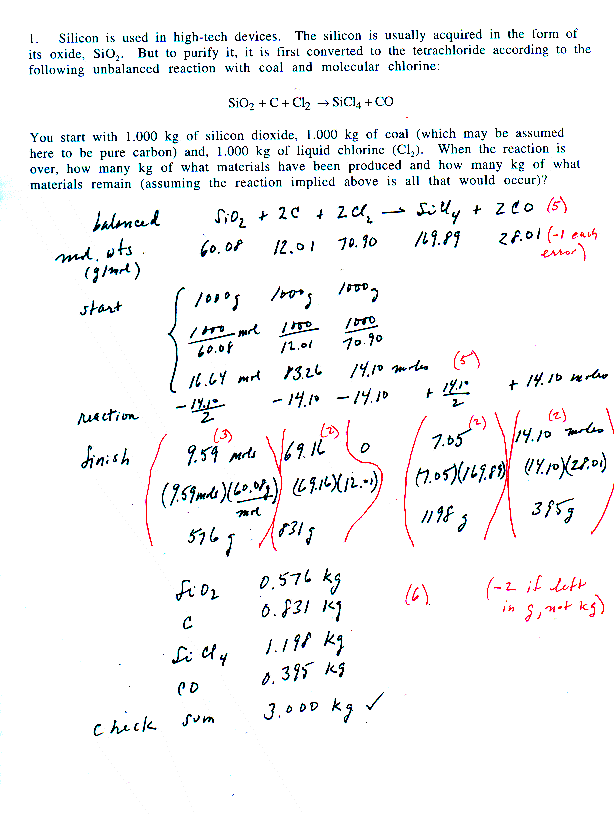 1. Silicon is used in high-tech devices. The silicon is usually acquired in the form of
its oxide, SiO₂. But to purify it, it is first converted to the tetrachloride according to the
following unbalanced reaction with coal and molecular chlorine:
SiO₂ + C + Cl₂ → SiCl₄ + CO
You start with 1.000 kg of silicon dioxide, 1.000 kg of coal (which may be assumed
here to be pure carbon) and, 1.000 kg of liquid chlorine (Cl₂). When the reaction is
over, how many kg of what materials have been produced and how many kg of what
materials remain (assuming the reaction implied above is all that would occur)?
balanced SiO₂ + 2C + 2Cl₂ → SiCl₄ + 2CO (5)
mol. wts. 60.08 12.01 70.90 169.89 28.01 (-1 each
(g/mol) error)
start 1000g 1000g 1000g
1000/60.08 mol 1000/12.01 1000/70.90
16.64 mol 83.26 14.10 moles (5)
reaction - 14.10/2 - 14.10 - 14.10 + 14.10/2 + 14.10 moles
(3) (2) (2) (2)
finish 9.59 mols 69.16 0 7.05 14.10 moles
(9.59 mols)(60.08 g/mol) (69.16)(12.01) (7.05)(169.89) (14.10)(28.01)
576 g 831 g 1198 g 395 g
SiO₂ 0.576 kg
C 0.831 kg (6) (-2 if left
in g, not kg)
SiCl₄ 1.198 kg
CO 0.395 kg
check sum 3.000 kg ✓